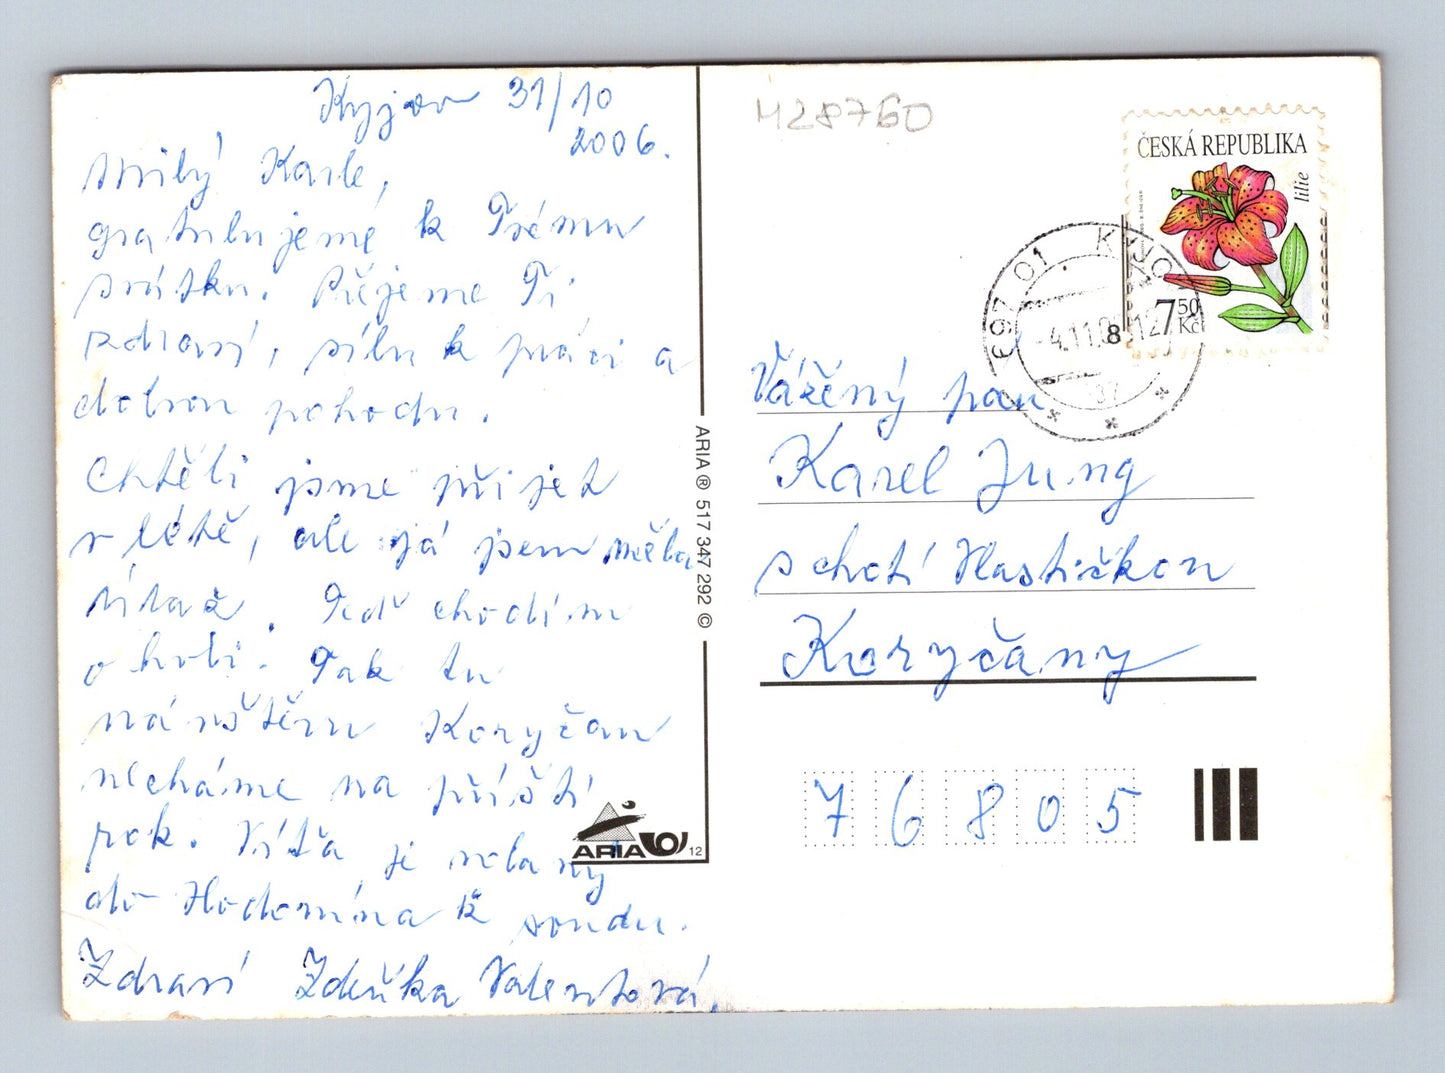 Kyjov 31/10
2006.
Milý Karle,
gratulujeme k Tvému
svátku. Přejeme Ti
zdraví, sílu k práci a
dobrou pohodu.
Chtěli jsme přijet
v létě, ale já jsem měla
útaž. Teď chodím
o holi. Tak tu
návštěvu Koryčan
necháme na příští
rok. Víťa je volaný
do Hodonína k soudu.
Zdraví Zdeňka Valentová.
ARIA 12
ARIA ® 517 347 292 ©
428760
ČESKÁ REPUBLIKA
lilie
7 50 Kč
697 01 KYJOV
-4.11.0 12
8
Vážený pan
Karel Jung
s chotí Vlastičkou
Koryčany
76805